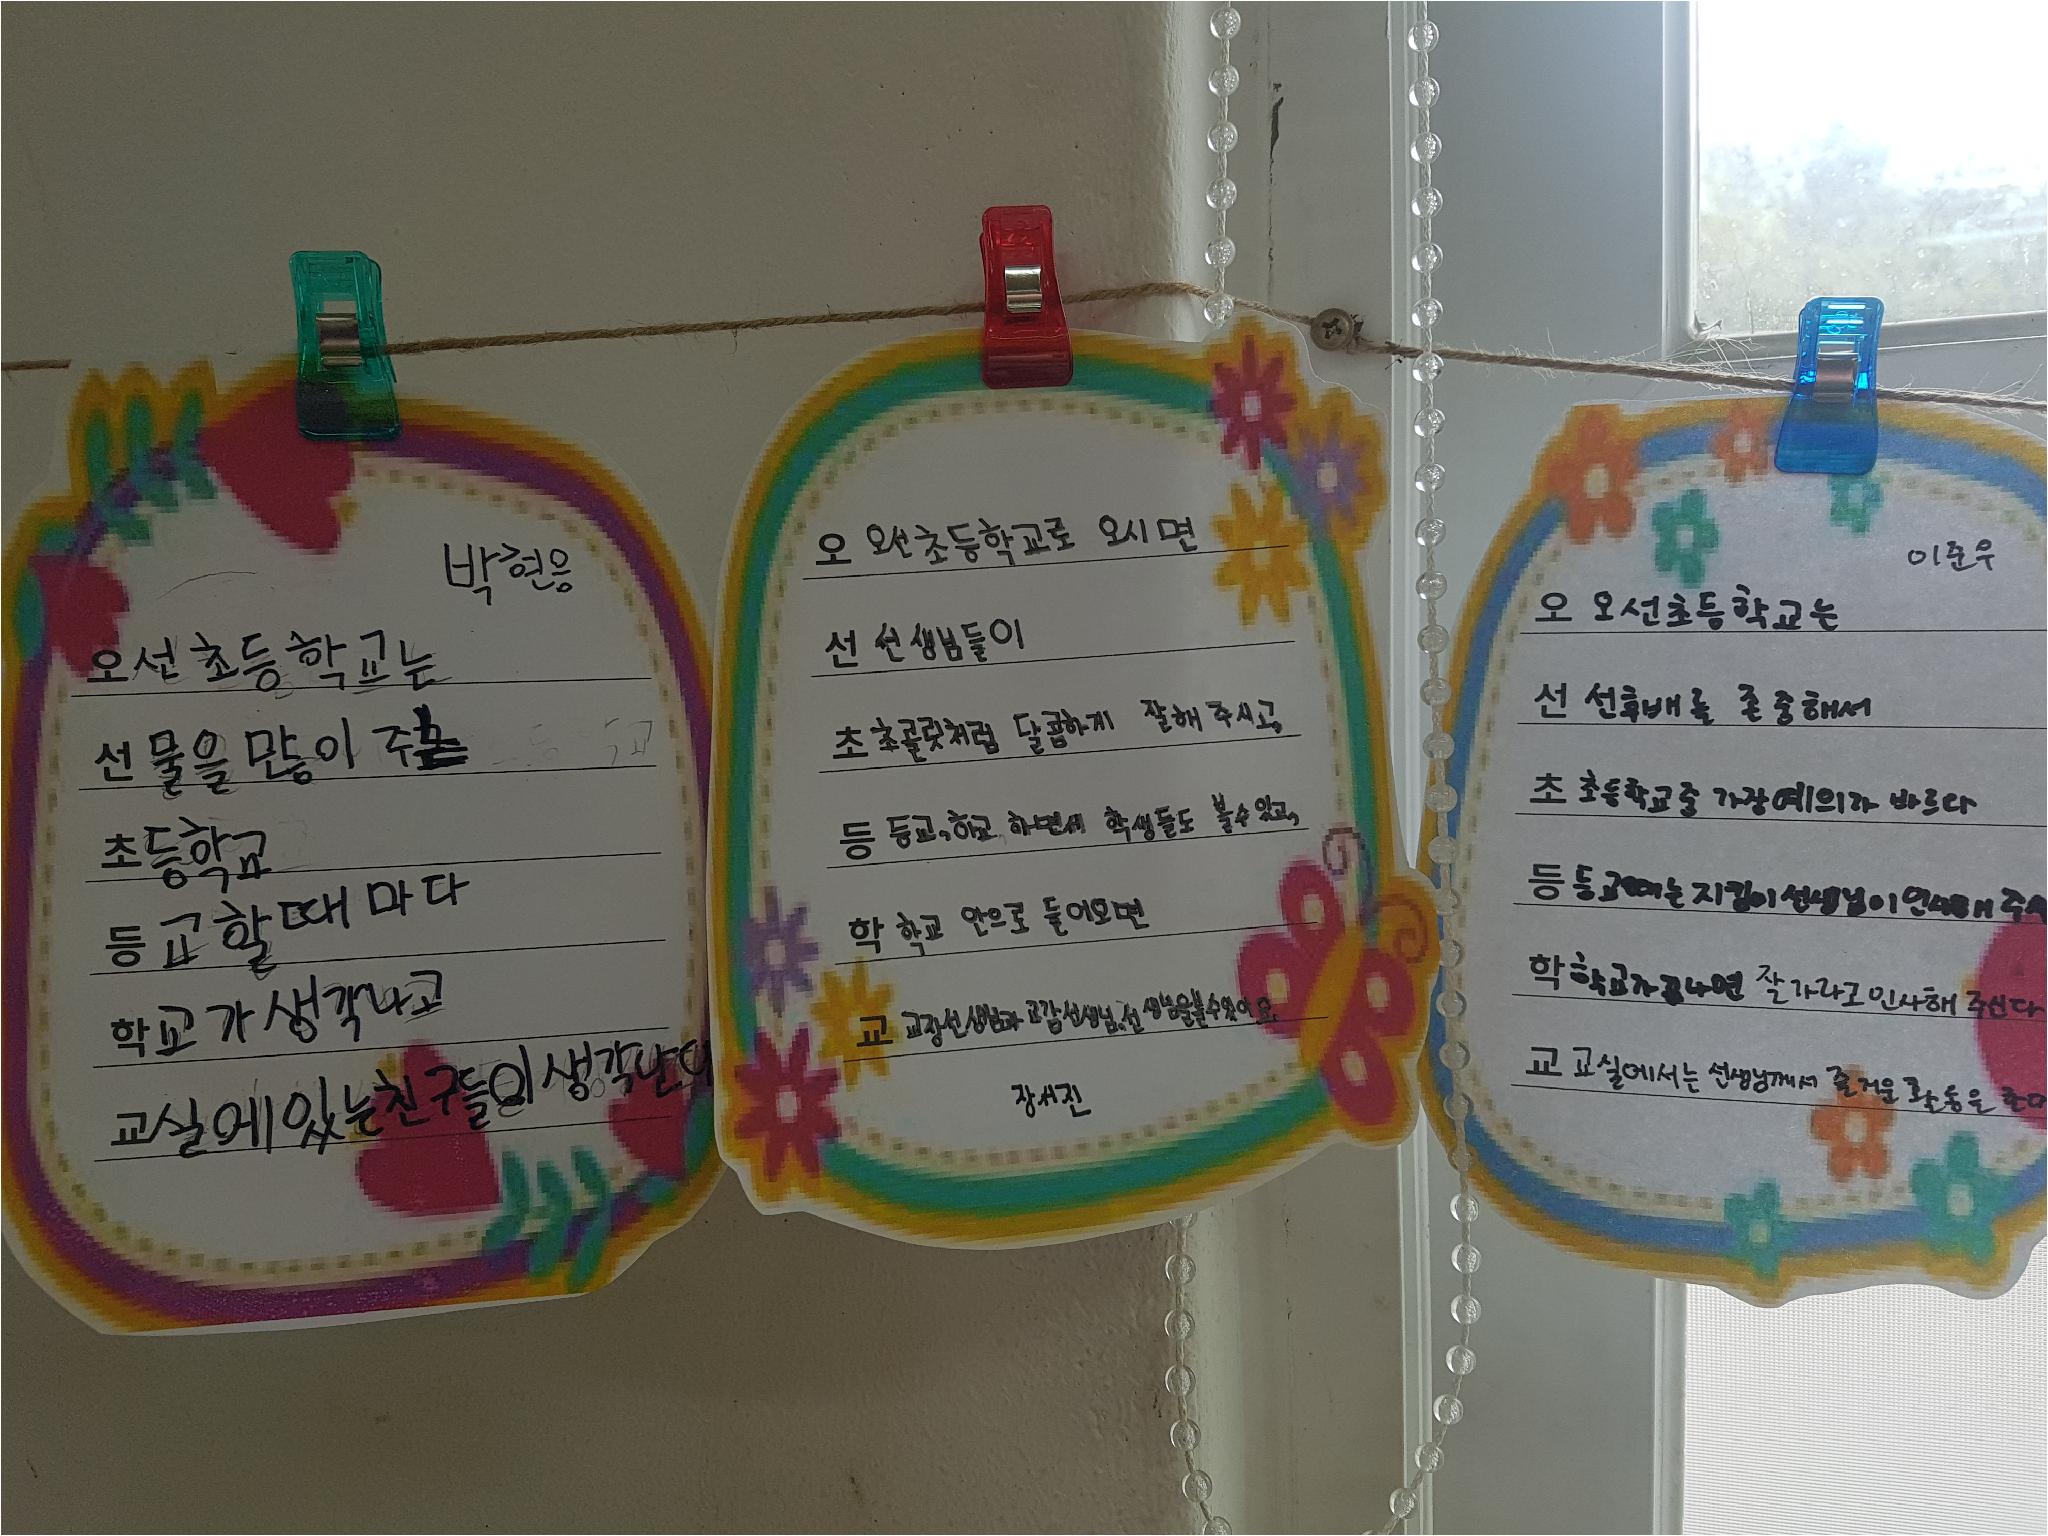 박현웅
오선초등학교는
선물을 많이 주는
초등학교
등교할때마다
학교가 생각나고
교실에 있는 친구들이 생각난다
오 오선초등학교로 오시면
선 선생님들이
초 초콜릿처럼 달콤하게 잘해 주시고,
등 등교, 하교 하면서 학생들도 볼수있고,
학 학교 안으로 들어오면
교 교장선생님과 교감선생님, 선생님을볼수있어요.
장서진
이준우
오 오선초등학교는
선 선후배를 존중해서
초 초등학교중 가장예의가 바르다
등 등교때는 지킴이선생님이 인사해 주시
학 학교가끝나면 잘가라고인사해 주신다
교 교실에서는 선생님께서 즐거운 활동을